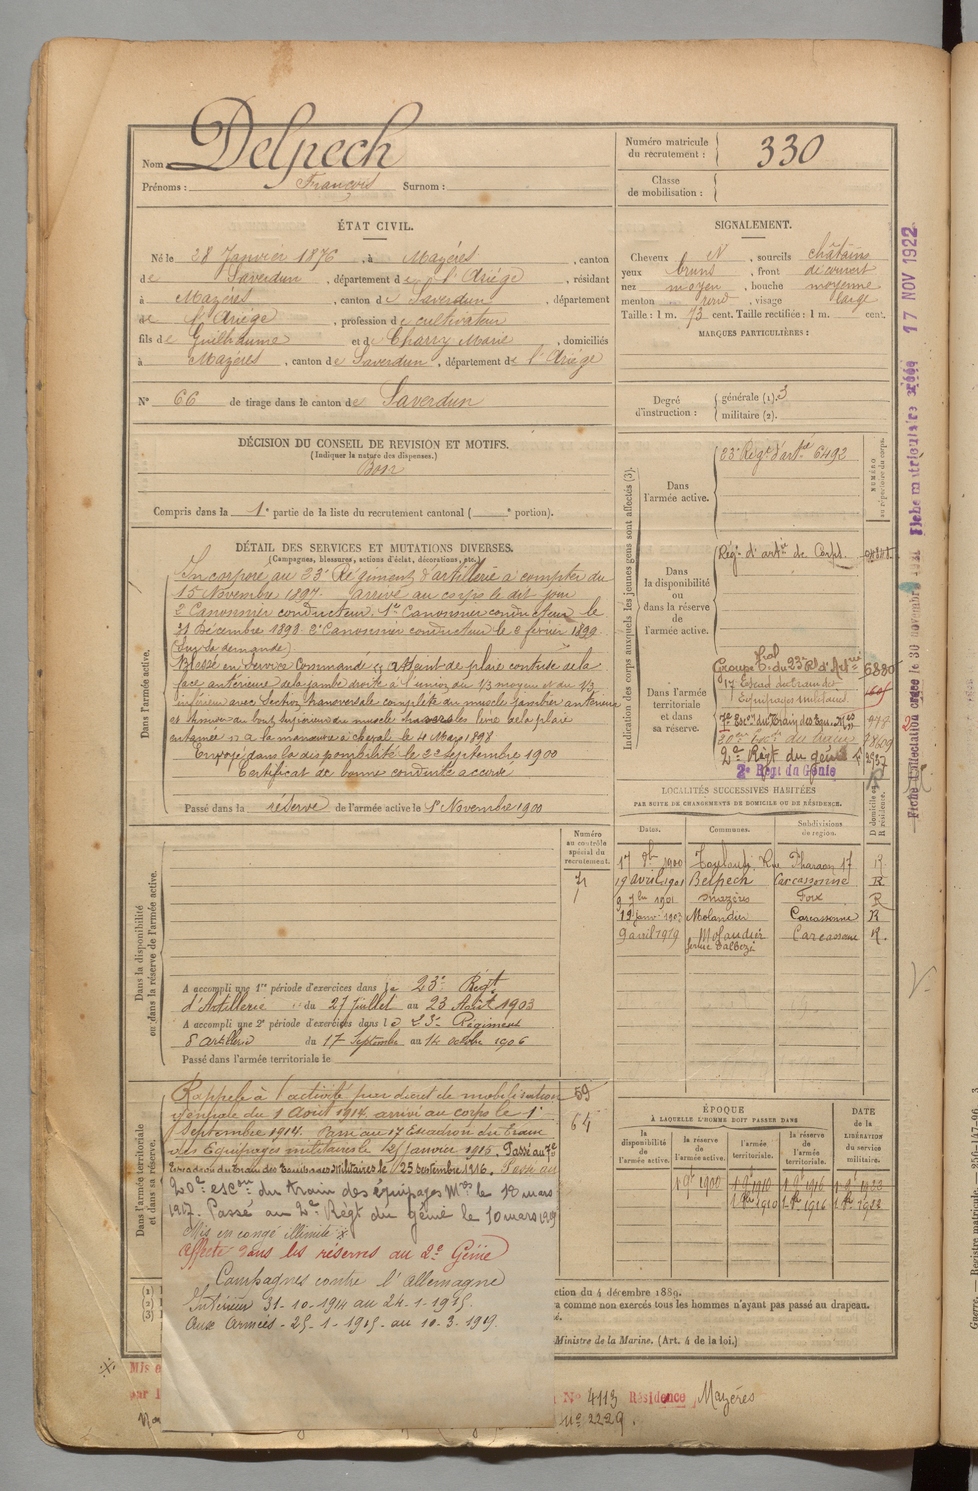 Nom Delpech
Prénoms : François Surnom :
Numéro matricule du recrutement : 330
Classe de mobilisation :
ÉTAT CIVIL.
Né le 28 Janvier 1876, à Mazères, canton
de Saverdun, département de l'Ariège, résidant
à Mazères, canton de Saverdun, département
de l'Ariège, profession de cultivateur
fils de Guilhaume et de Charry Marie, domiciliés
à Mazères, canton de Saverdun, département de l'Ariège
N° 66 de tirage dans le canton de Saverdun
SIGNALEMENT.
Cheveux N, sourcils châtains
yeux bruns, front découvert
nez moyen, bouche moyenne
menton rond, visage large
Taille : 1 m. 73 cent. Taille rectifiée : 1 m. cent.
MARQUES PARTICULIÈRES :
Degré d'instruction : générale (1). 3
militaire (2).
DÉCISION DU CONSEIL DE REVISION ET MOTIFS.
(Indiquer la nature des dispenses.)
Bon
Compris dans la 1e partie de la liste du recrutement cantonal ( e portion).
DÉTAIL DES SERVICES ET MUTATIONS DIVERSES.
(Campagnes, blessures, actions d'éclat, décorations, etc.)
Dans l'armée active.
Incorporé au 23e Régiment d'artillerie à compter du
15 Novembre 1897. arrivé au corps le dit jour
2e Canonnier conducteur. 1er Canonnier conducteur le
31 Décembre 1898 2e Canonnier conducteur le 2 février 1899
(sur sa demande)
Blessé en Service Commandé atteint de plaie contuse de la
face antérieure de la jambe droite à l'union du 1/3 moyen et du 1/3
inférieur avec Section transversale complète du muscle jambier antérieur
et du bout supérieur du muscle les lèvres de la plaie
entamée à la manœuvre à cheval le 4 Mars 1898
Envoyé dans la disponibilité le 22 septembre 1900
Certificat de bonne conduite accordé
Passé dans la réserve de l'armée active le 1er Novembre 1900
Indication des corps auxquels les jeunes gens sont affectés (3).
NUMÉRO au répertoire du corps.
Dans l'armée active.
23e Régt d'artie 6492
Dans la disponibilité ou dans la réserve de l'armée active.
Régt d'artie de Corps.
Dans l'armée territoriale et dans sa réserve.
Groupe Tial du 23e Rt d'Artie 6880
17 Escad du train des
Equipages militaires
7e Escon du Train des Equ. Mres
20me Escon du train
2e Régt du génie 3937
2e Régt du Génie
LOCALITÉS SUCCESSIVES HABITÉES
PAR SUITE DE CHANGEMENTS DE DOMICILE OU DE RÉSIDENCE.
D domicile ou R résidence.
Dates. Communes. Subdivisions de region.
17 9bre 1900 Toulouse, Rue Pharaon 17 R
19 avril 1901 Belpech Carcassonne R
9 7bre 1901 Mazères Foix R
19 janv. 1903 Molandier Carcassonne R
9 avril 1919 Molandier Carcassonne R.
Numéro au contrôle spécial du recrutement.
Dans la disponibilité ou dans la réserve de l'armée active.
A accompli une 1re période d'exercices dans le 23e Régt
d'Artillerie du 27 Juillet au 23 Août 1903
A accompli une 2e période d'exercices dans le 23e Régiment
d'artillerie du 17 Septembre au 14 octobre 1906
Passé dans l'armée territoriale le
Dans l'armée territoriale et dans sa réserve.
Rappelé à l'activité par décret de mobilisation 59
générale du 1 Août 1914. arrivé au corps le 1er 64
septembre 1914. Passé au 17 Escadron du Train
des Equipages militaires le 25 janvier 1915. Passé au 7e
Escadron du Train des Equipages Militaires le 25 septembre 1916. Passé au
20e escon du train des équipages Mres le 18 mars
1917. Passé au 2e Régt du génie le 10 mars 1919
Mis en congé illimité
Affecté dans les réserves au 2e Génie
Campagnes contre l'Allemagne
Intérieur 31-10-1914 au 24-1-1915.
Aux Armées - 25-1-1915- au 10-3-1919.
ÉPOQUE
À LAQUELLE L'HOMME DOIT PASSER DANS
la disponibilité de l'armée active.
la réserve de l'armée active.
l'armée territoriale.
la réserve de l'armée territoriale.
DATE de la LIBÉRATION du service militaire.
1 9bre 1900 1 9bre 1910 1 9bre 1916 1 9bre 1922
(1)
(2)
(3)
ction du 4 décembre 1889.
a comme non exercés tous les hommes n'ayant pas passé au drapeau.
Ministre de la Marine. (Art. 4 de la loi.)
Mis e
par l
N° 4113 Résidence, Mazères
n° 2229.
17 NOV 1922
Guerre. — Registre matricule. — 256-147-96.